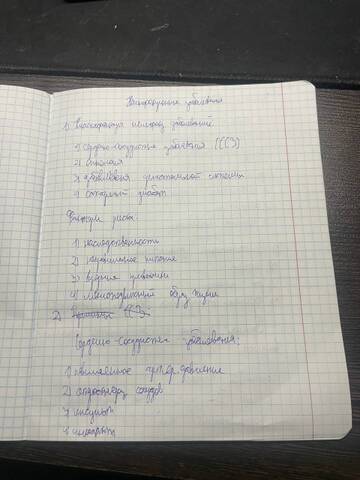 Неинфекционные заболевания
1) Классификация неинфекц. заболеваний:
1) Сердечно-сосудистые заболевания (ССЗ)
2) Онкология
3) заболевания дыхательной системы
4) Сахарный диабет
Факторы риска:
1) наследственность
2) неправильное питание
3) вредные привычки
4) малоподвижный образ жизни
2) ССЗ
Сердечно-сосудистые заболевания:
1) повышенное артер. давление
2) атеросклероз сосудов
3) инсульт
4) инфаркт